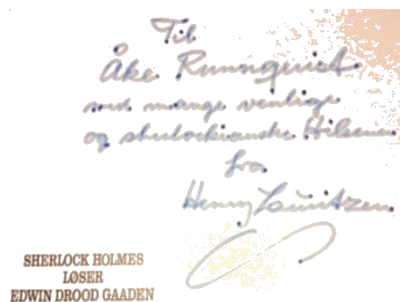 Til
Åke Runnquist
med mange venlige
og sherlockianske Hilsener
fra
Henry Lauritzen.
SHERLOCK HOLMES
LØSER
EDWIN DROOD GAADEN